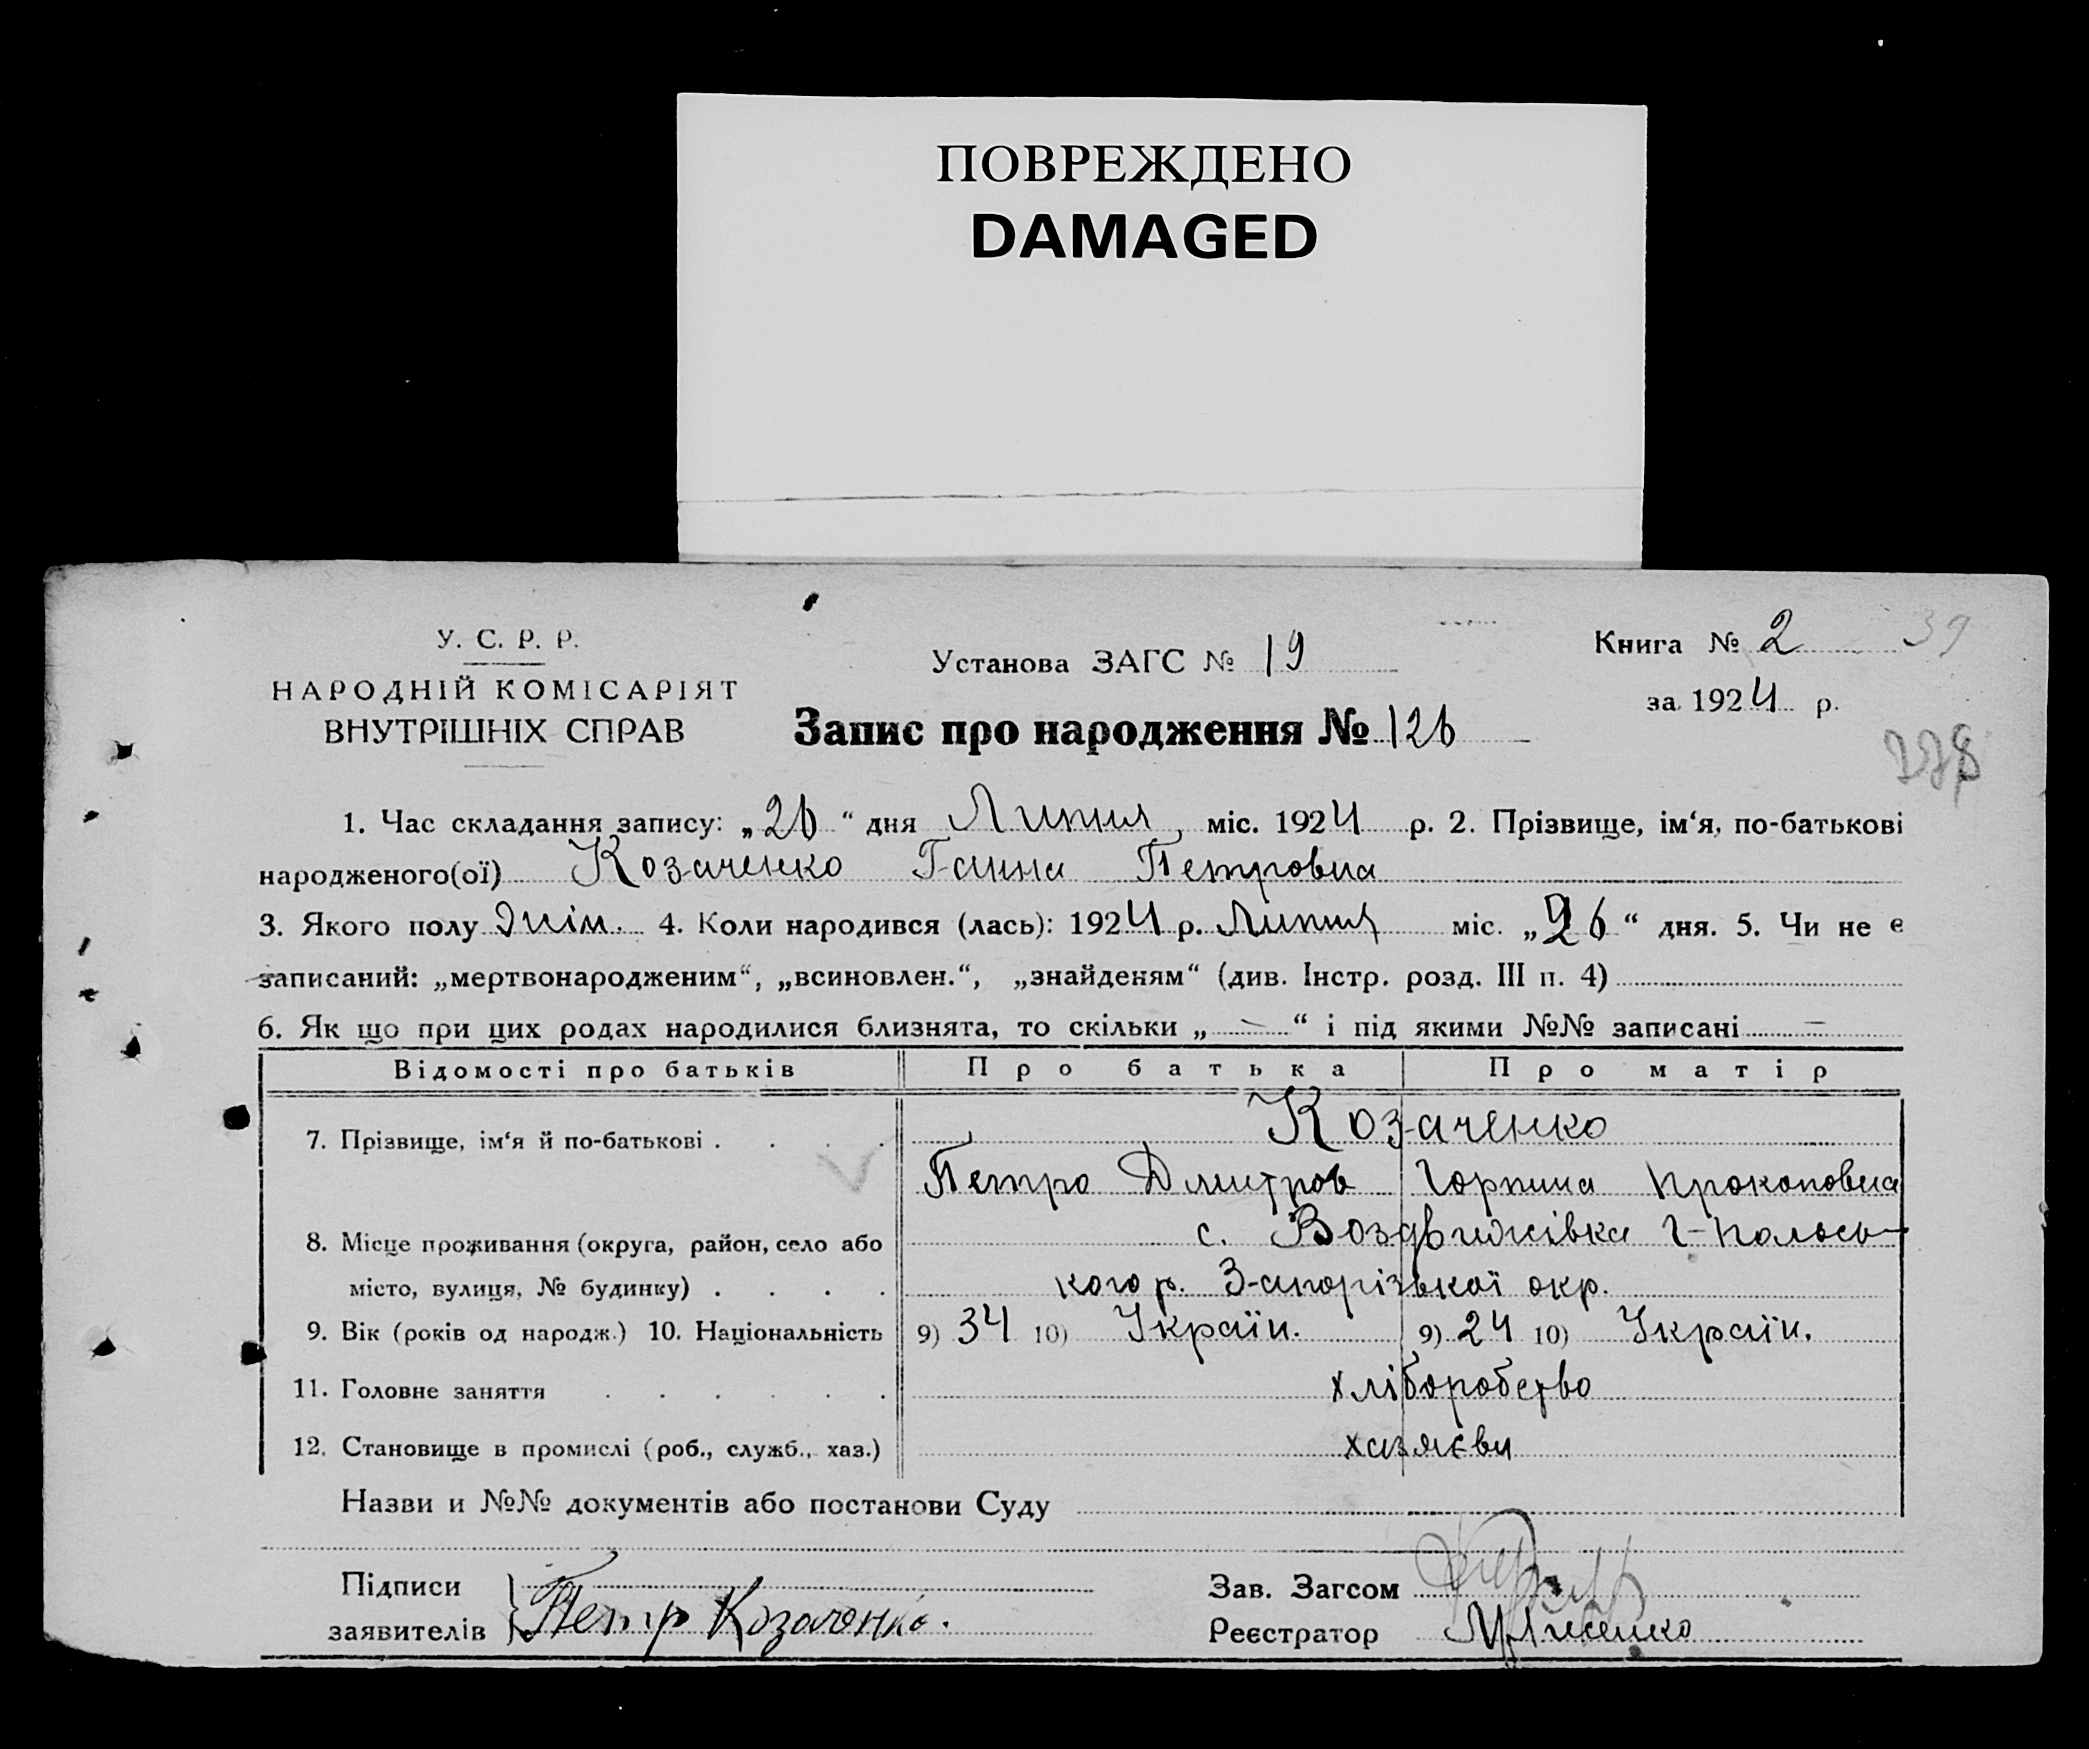 ПОВРЕЖДЕНО
DAMAGED
У. С. Р. Р.
НАРОДНІЙ КОМІСАРІЯТ
ВНУТРІШНІХ СПРАВ
Установа ЗАГС № 19
Запис про народження № 126
Книга № 2 39
за 1924 р.
1. Час складання запису: „26“ дня Липня, міс. 1924 р. 2. Прізвище, ім‘я, по-батькові
народженого(ої) Козаченко Ганна Петровна
3. Якого полу жін. 4. Коли народився (лась): 1924 р. Липня міс. „26“ дня. 5. Чи не є
записаний: „мертвонародженим“, „всиновлен.“, „знайденям“ (див. Інстр. розд. III п. 4)
6. Як що при цих родах народилися близнята, то скільки „ — “ і під якими №№ записані —
Відомості про батьків Про батька Про матір
7. Прізвище, ім‘я й по-батькові . . . . Козаченко
Петро Дмитров Горпина Прокоповна
8. Місце проживання (округа, район, село або с. Воздвижівка Г-Польсь-
місто, вулиця, № будинку) . . . . кого р. Запорізької окр.
9. Вік (років од народж.) 10. Національність 9) 34 10) Україн. 9) 24 10) Україн.
11. Головне заняття . . . . . хліборобство
12. Становище в промислі (роб., служб., хаз.) хазяєви
Назви и №№ документів або постанови Суду
Підписи
заявителів Петр Козаченко.
Зав. Загсом
Реєстратор Лисенко